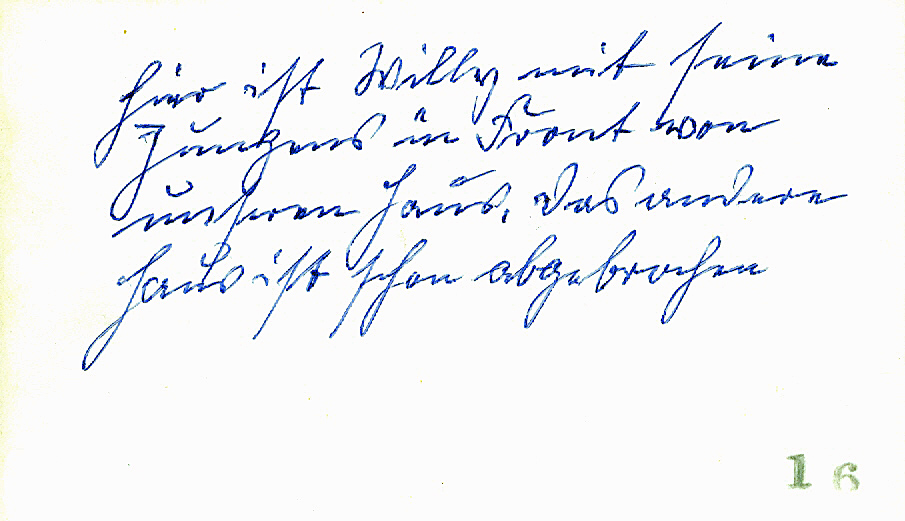 Hier ist Willy mit seine
Jungens in Front von
unseren Haus, das andere
Haus ist schon abgebrochen
16